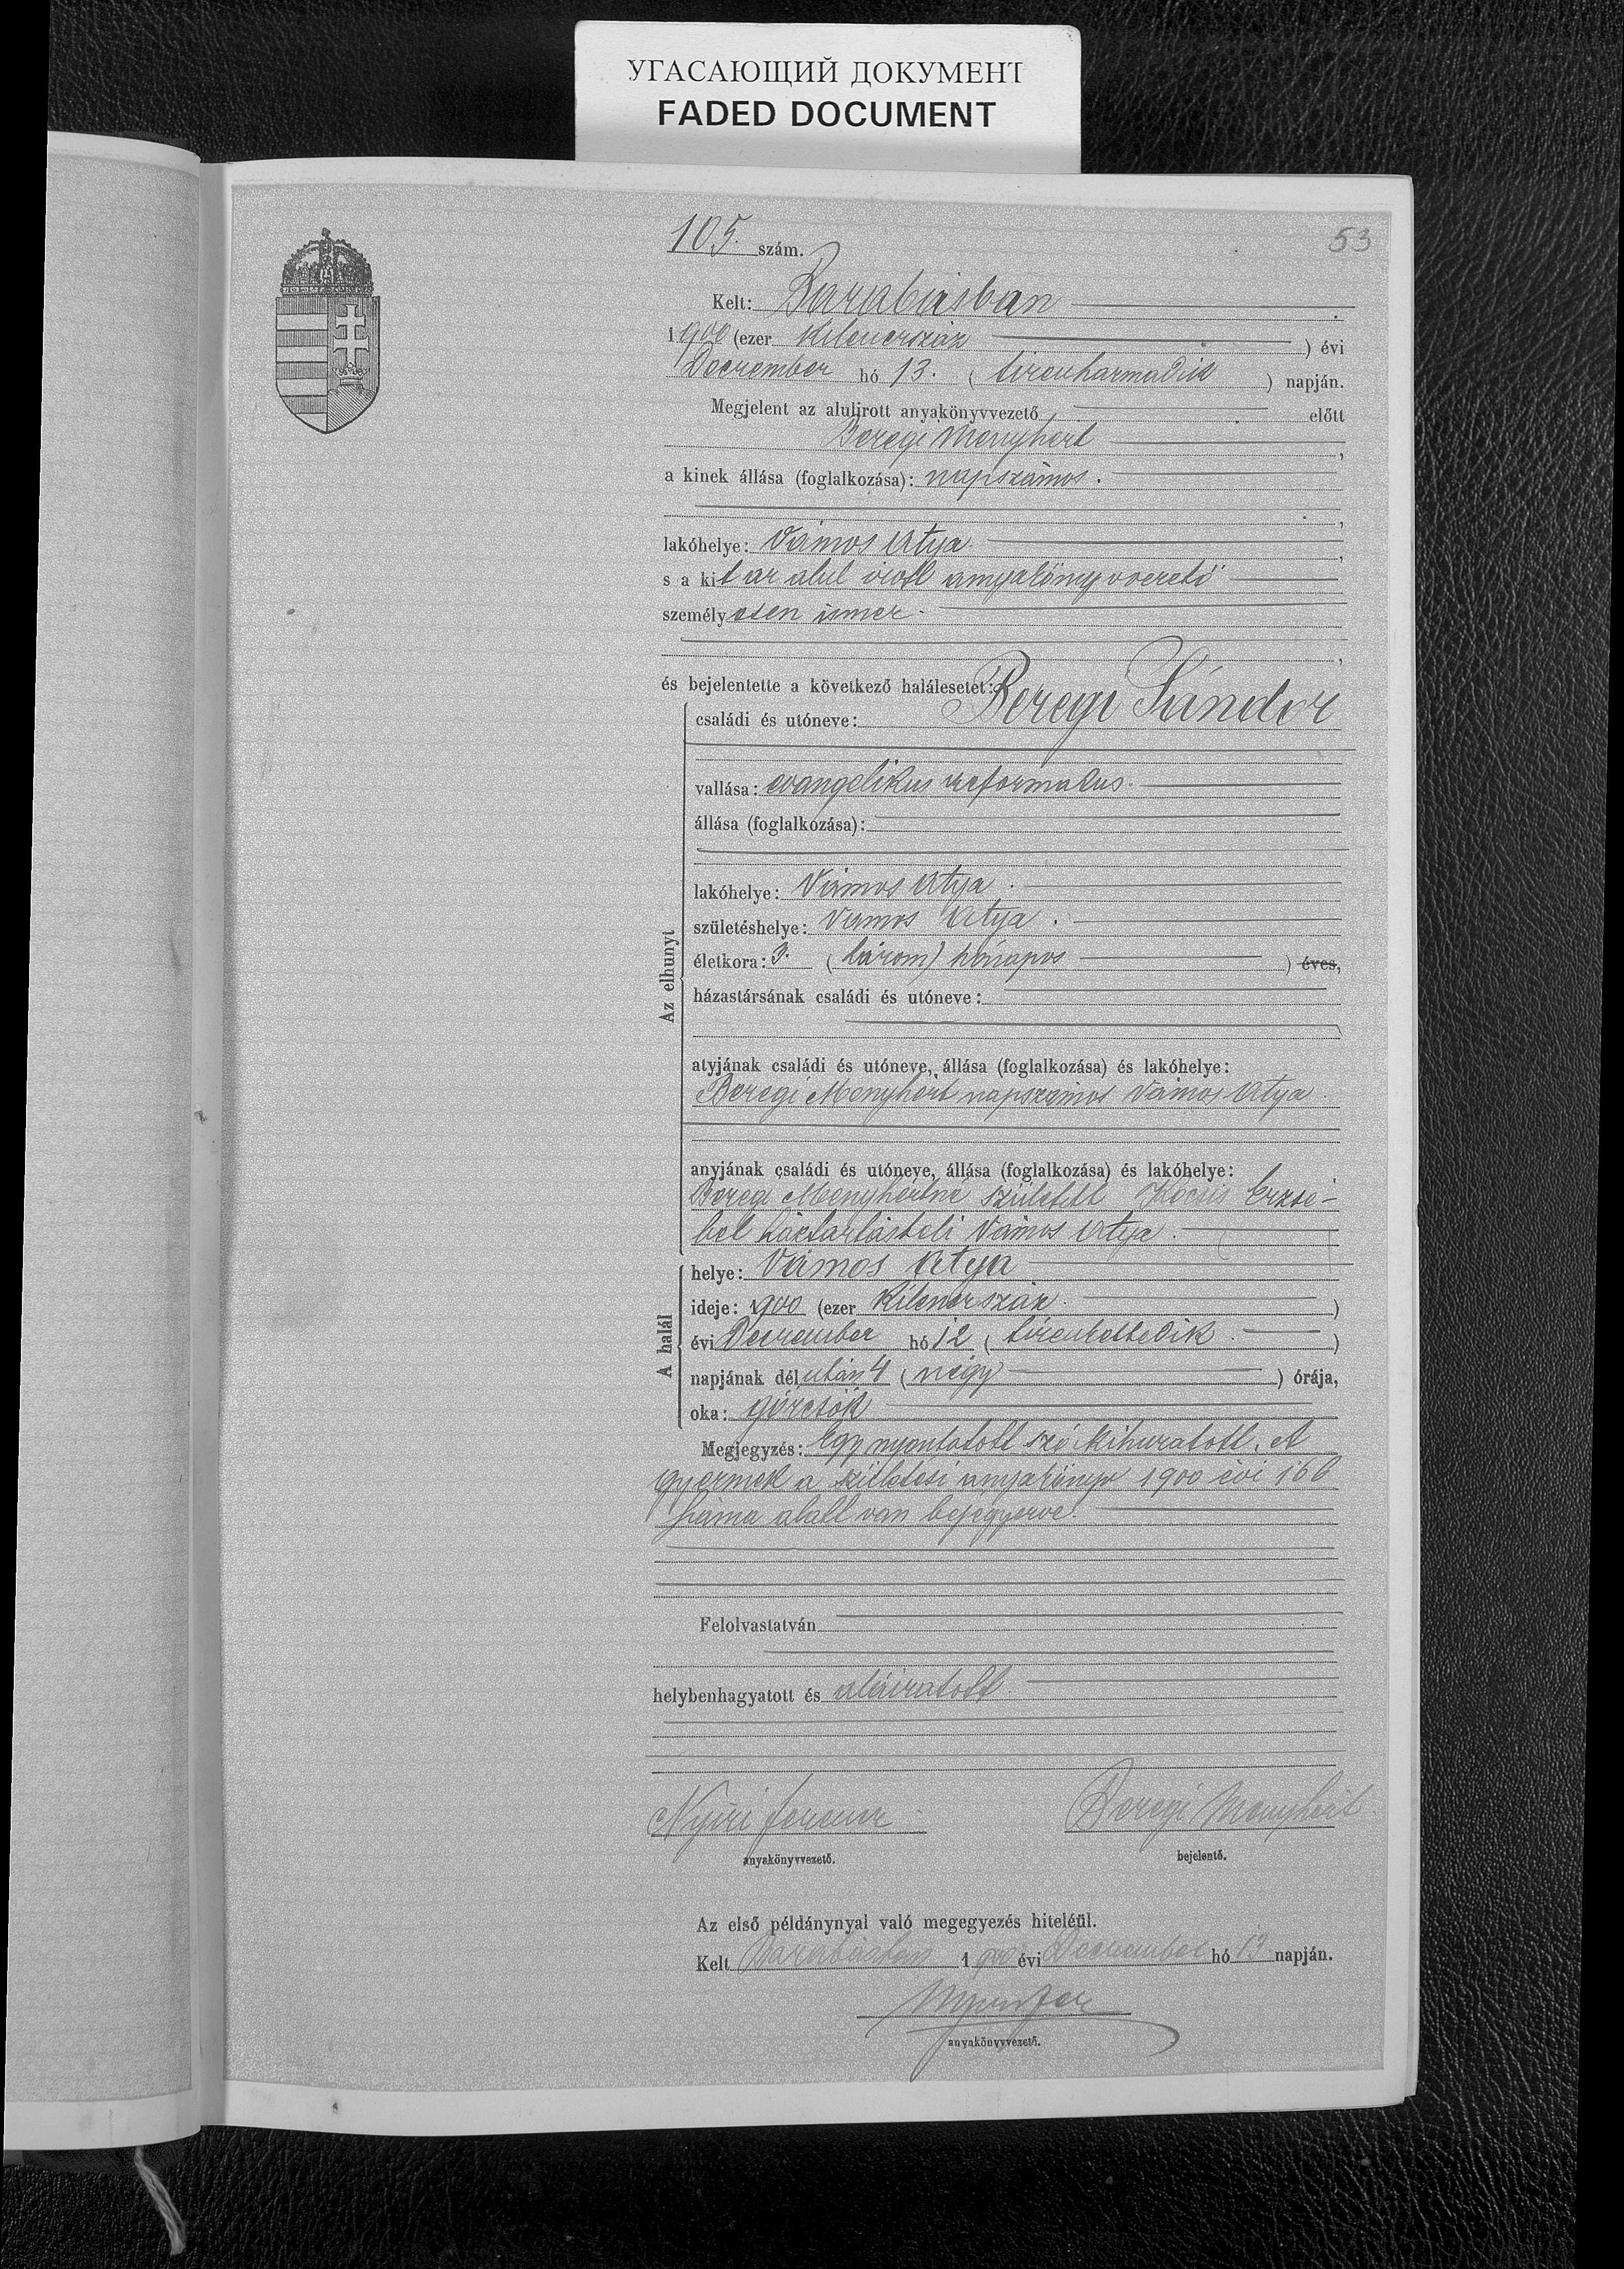 УГАСАЮЩИЙ ДОКУМЕНТ
FADED DOCUMENT
53
105. szám.
Kelt: Barabásban
1900 (ezer kilenczszáz ) évi
Deczember hó 13. ( tizenharmadik ) napján.
Megjelent az alulirott anyakönyvvezető előtt
Beregi Menyhért ,
a kinek állása (foglalkozása): napszámos.
,
lakóhelye: Vámos Atya ,
s a kit az alul irott anyakönyvvezető
személyesen ismer.
,
és bejelentette a következő halálesetet:
Az elhunyt
családi és utóneve: Beregi Sándor
vallása: evangelikus reformatus.
állása (foglalkozása):
lakóhelye: Vámos Atya.
születéshelye: Vámos Atya.
életkora: 3. ( három) hónapos ) éves,
házastársának családi és utóneve:
atyjának családi és utóneve, állása (foglalkozása) és lakóhelye:
Beregi Menyhért napszámos Vámos Atya
anyjának családi és utóneve, állása (foglalkozása) és lakóhelye:
Beregi Menyhértné született Kocsis Erzsé-
bet háztartásbeli Vámos Atya.
A halál
helye: Vámos Atya
ideje: 1900 (ezer kilenczszáz. )
évi Deczember hó 12 ( tizenkettedik. )
napjának délután 4 ( négy ) órája,
oka: görcsök
Megjegyzés: Egy nyomtatott szó kihuzatott. A
gyermek a születési anyakönyv 1900 évi 160
száma alatt van bejegyezve.
Felolvastatván
helybenhagyatott és aláiratott.
Nyiri Ferencz Beregi Menyhért
anyakönyvvezető. bejelentő.
Az első példánynyal való megegyezés hiteléül.
Kelt Barabásban 1900 évi Deczember hó 13 napján.
anyakönyvvezető.